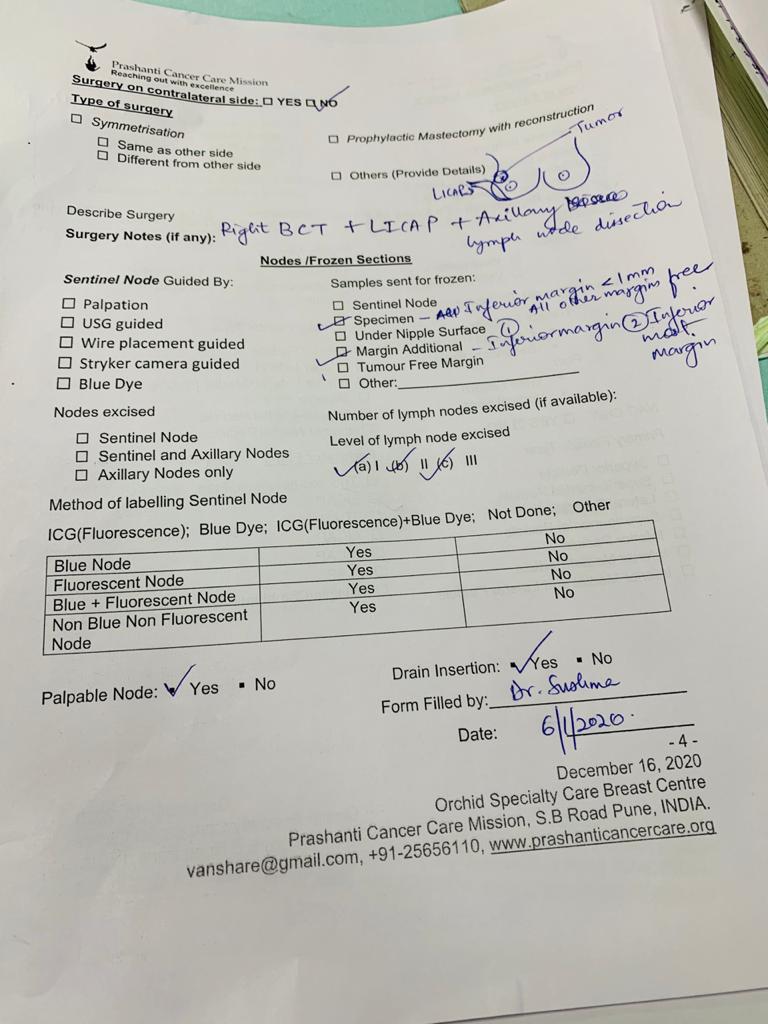 Prashanti Cancer Care Mission
Reaching out with excellence
Surgery on contralateral side: ☐ YES ☐ NO
Type of surgery
☐ Symmetrisation
☐ Same as other side
☐ Different from other side
☐ Prophylactic Mastectomy with reconstruction
☐ Others (Provide Details)
Tumor
LICAP
Describe Surgery
Surgery Notes (if any): Right BCT + LICAP + Axillary
lymph node dissection
Nodes /Frozen Sections
Sentinel Node Guided By:
☐ Palpation
☐ USG guided
☐ Wire placement guided
☐ Stryker camera guided
☐ Blue Dye
Samples sent for frozen:
☐ Sentinel Node
☐ Specimen – Inferior margin <1mm
All other margins free
☐ Under Nipple Surface
☐ Margin Additional – ① Inferior margin ② Inferior
most margin
☐ Tumour Free Margin
☐ Other:
Nodes excised
☐ Sentinel Node
☐ Sentinel and Axillary Nodes
☐ Axillary Nodes only
Number of lymph nodes excised (if available):
Level of lymph node excised
(a) I (b) II (c) III
Method of labelling Sentinel Node
ICG(Fluorescence); Blue Dye; ICG(Fluorescence)+Blue Dye; Not Done; Other
Blue Node Yes No
Fluorescent Node Yes No
Blue + Fluorescent Node Yes No
Non Blue Non Fluorescent Node Yes No
Palpable Node: ▪ Yes ▪ No
Drain Insertion: ▪ Yes ▪ No
Form Filled by: Dr. Sushma
Date: 6/1/2020.
- 4 -
December 16, 2020
Orchid Specialty Care Breast Centre
Prashanti Cancer Care Mission, S.B Road Pune, INDIA.
vanshare@gmail.com, +91-25656110, www.prashanticancercare.org